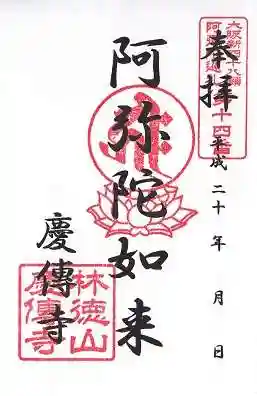 大阪新四十八願
阿弥陀巡
第十四番
奉拝
平成二十年 月 日
阿弥陀如来
慶傳寺
林徳山
慶傳寺